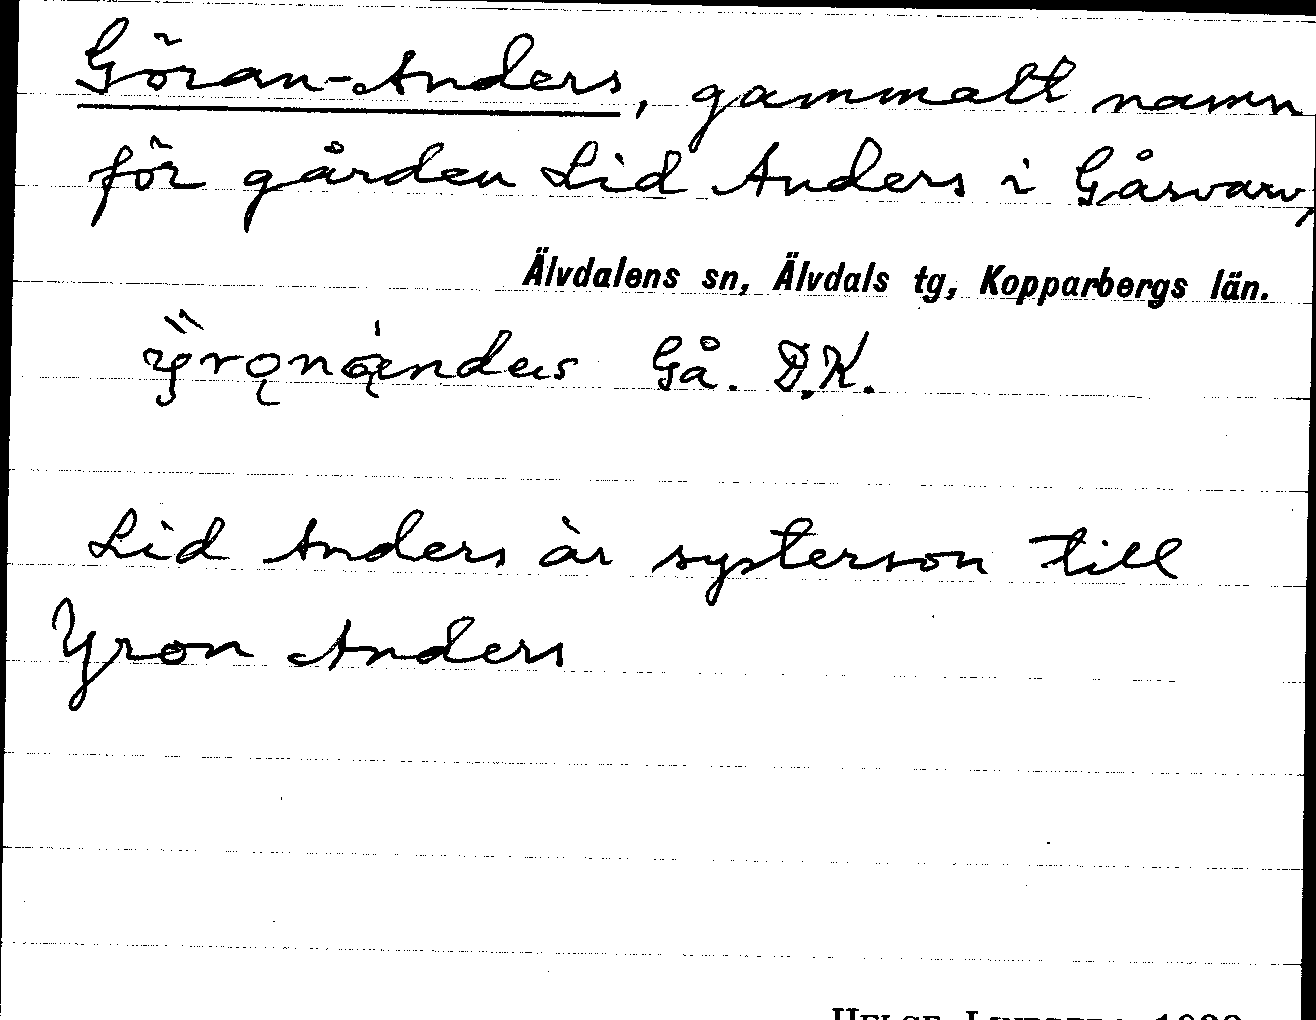 Göran-Anders, gammalt namn
för gården Lid Anders i Gåsvarv,
Älvdalens sn, Älvdals tg, Kopparbergs län.
Gå. D.K.
Lid Anders är systerson till
Yron Anders